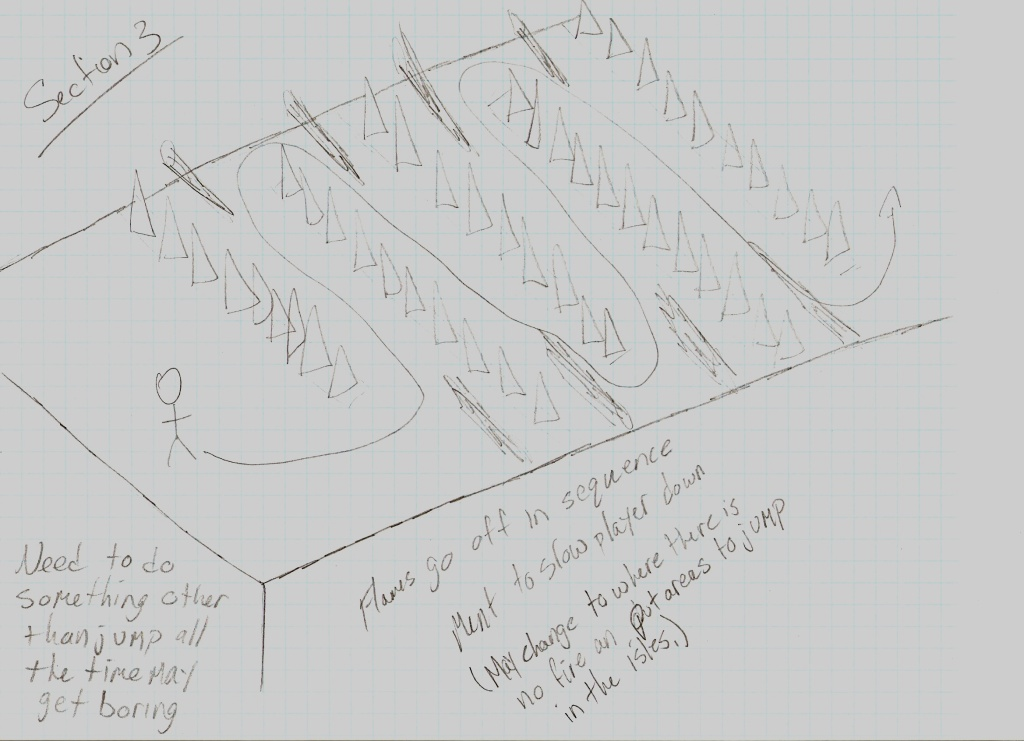 Section 3
Need to do
something other
than jump all
the time May
get boring
Flames go off in sequence
Ment to slow player down
(May change to where there is
no fire an put areas to jump
in the isles.)